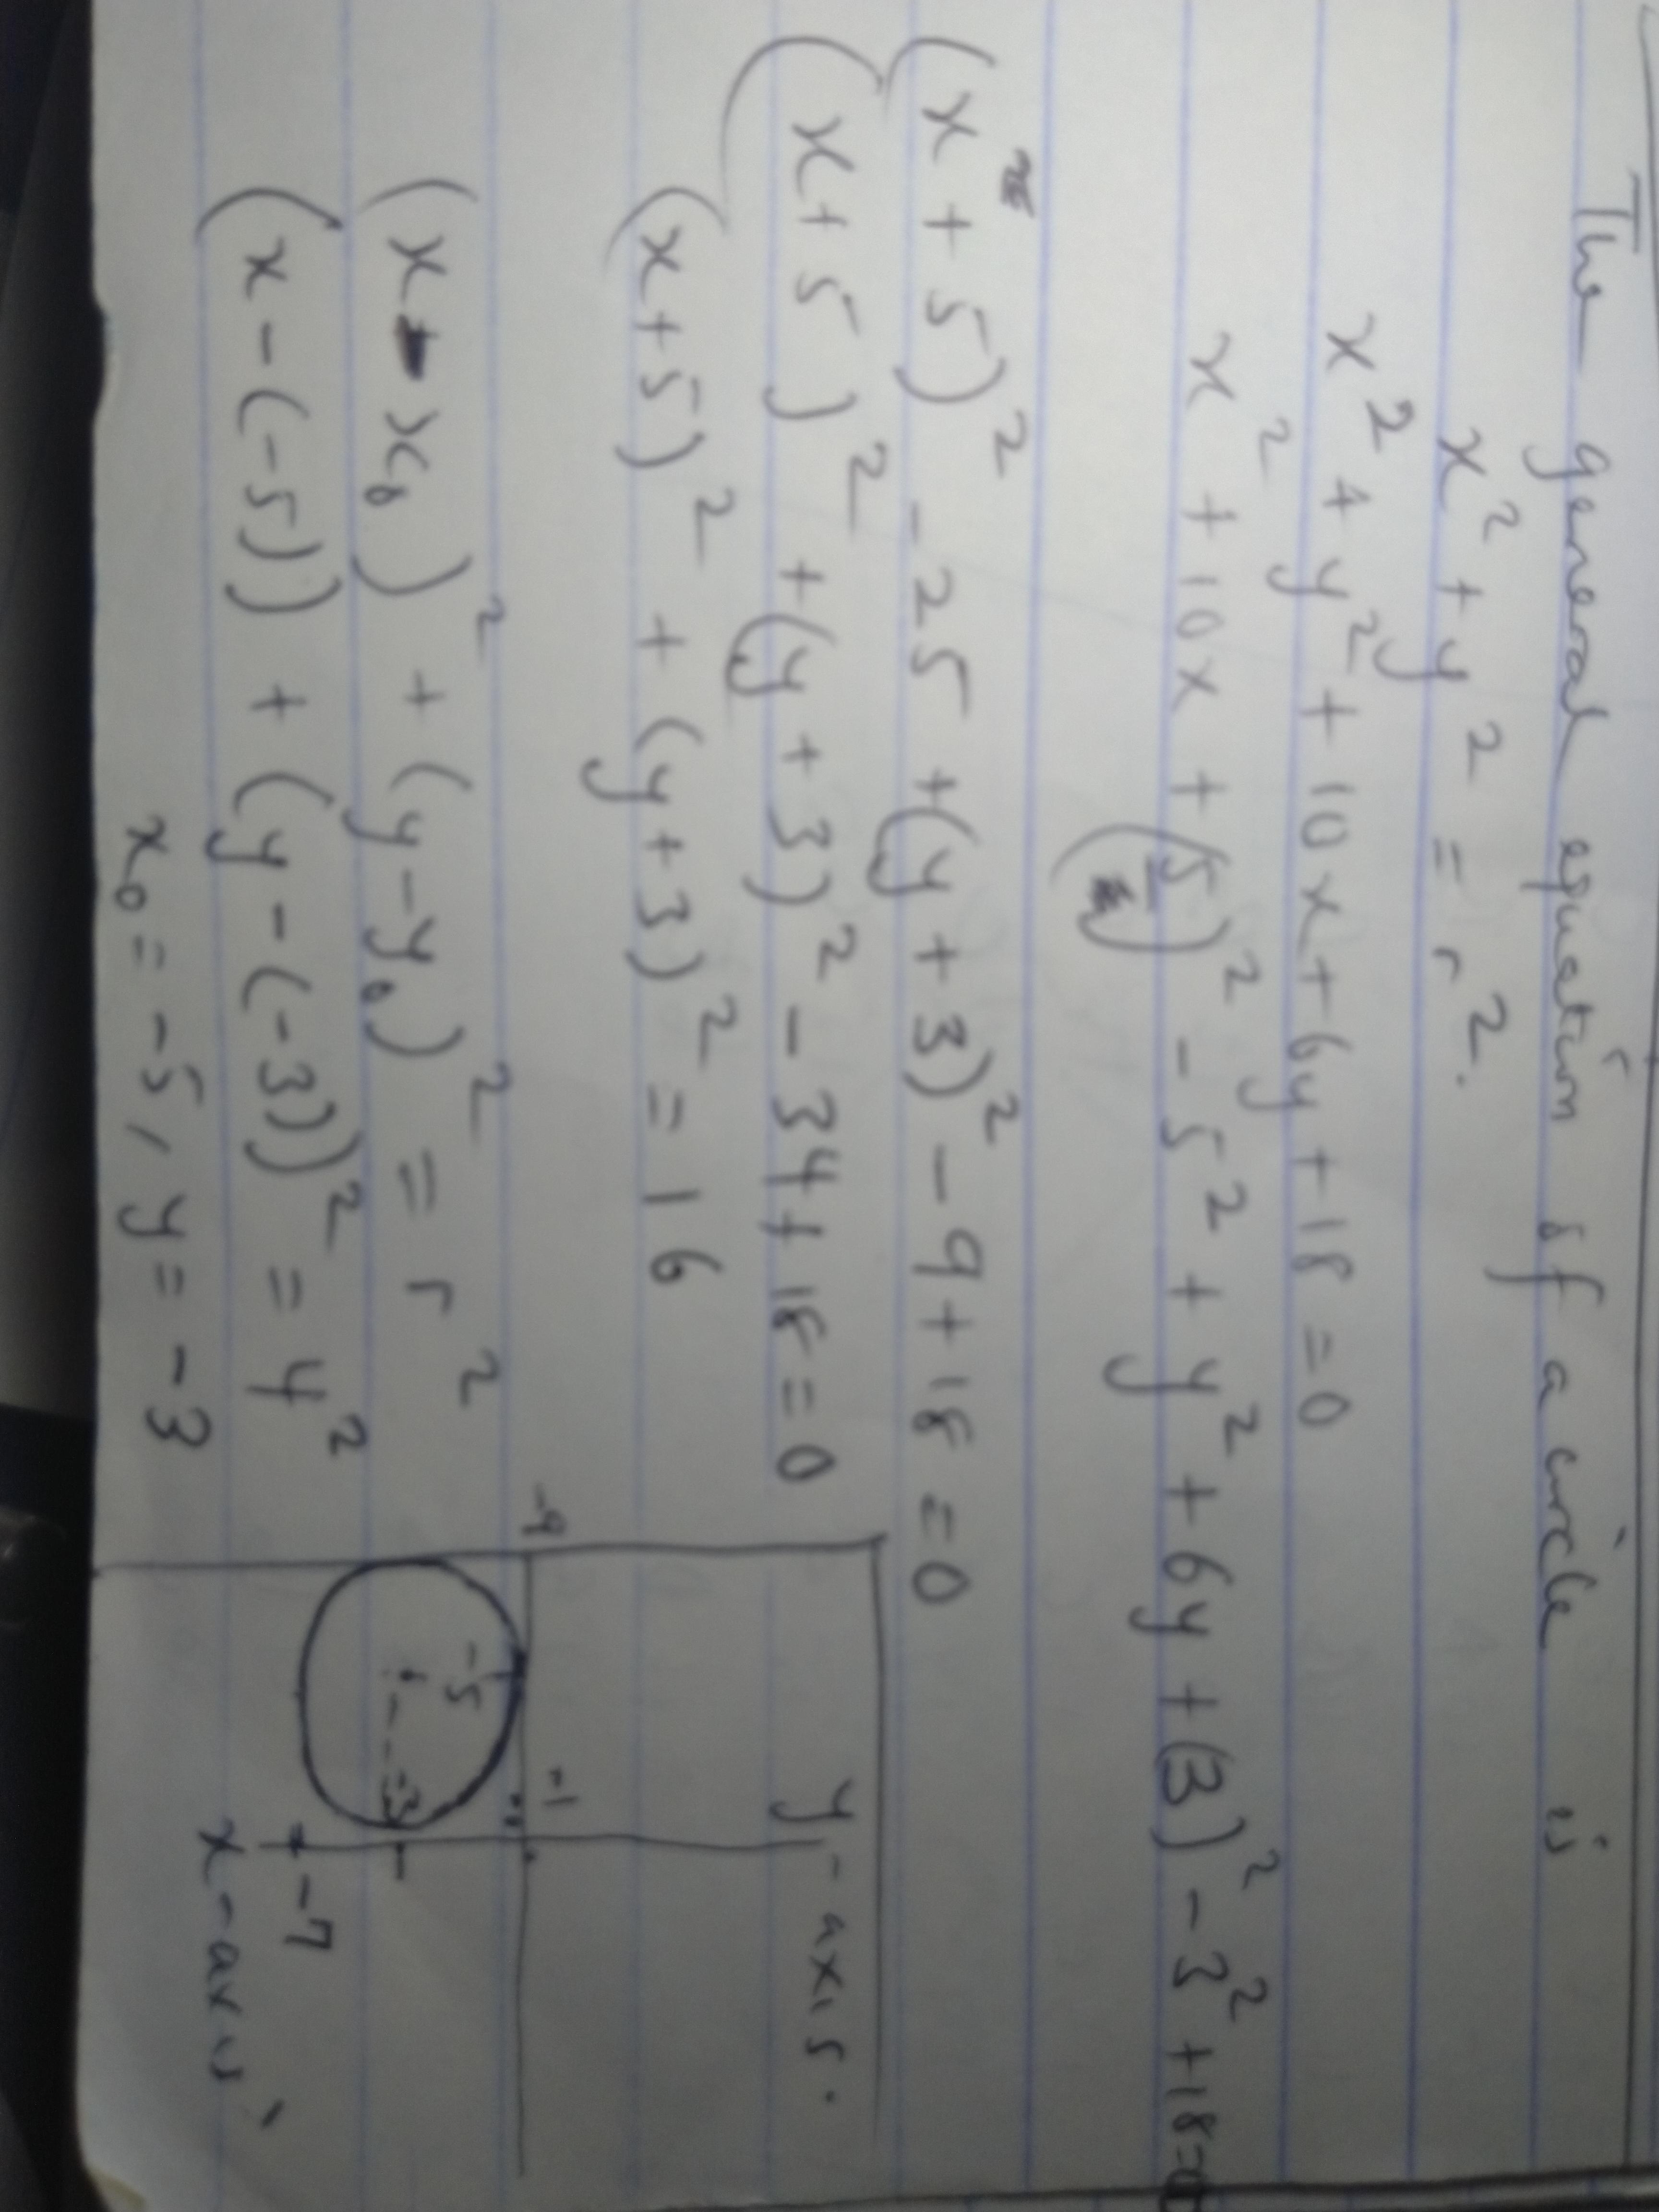 The general equation of a circle is
x² + y² = r².
x² + y² + 10x + 6y + 18 = 0
x² + 10x + (5)² - 5² + y² + 6y + (3)² - 3² + 18 = 0
(x + 5)² - 25 + (y + 3)² - 9 + 18 = 0
(x + 5)² + (y + 3)² - 34 + 18 = 0
(x + 5)² + (y + 3)² = 16
(x - x₀)² + (y - y₀)² = r²
(x - (-5)) + (y - (-3))² = 4²
x₀ = -5, y = -3
y-axis.
-9
-1
-5
-3
-7
x-axis